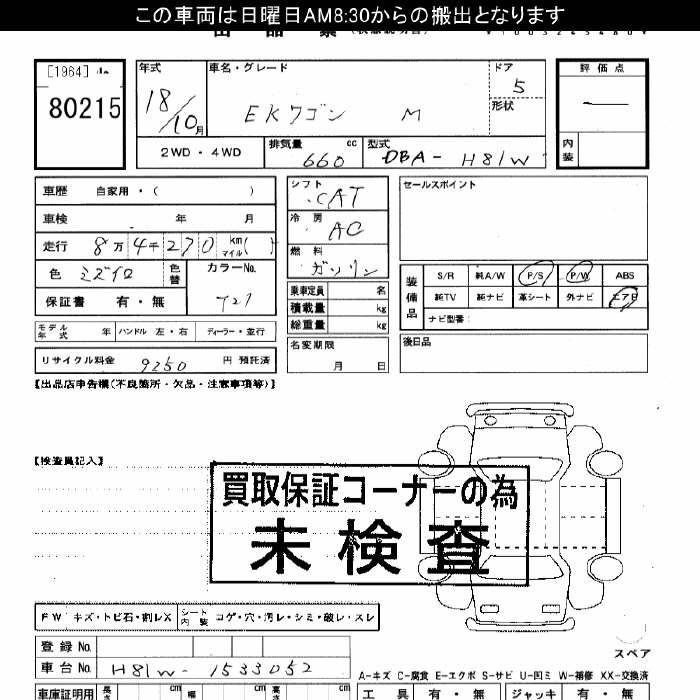 この車両は日曜日AM8:30からの搬出となります
出品票
[1964]
80215
年式 車名・グレード ドア 評価点
18/10月 EKワゴン M 5 形状 ー
2WD・4WD 排気量 660 cc 型式 DBA-H81W 内装
車歴 自家用・( ) シフト CAT セールスポイント
車検 年 月 冷房 AC
走行 8万4千270km マイル( ) 燃料 ガソリン
色 ミズイロ 色替 カラーNo. T27
保証書 有・無
装備品 S/R 純A/W P/S P/W ABS
純TV 純ナビ 革シート 外ナビ エアB
ナビ型番:
乗車定員 名
積載量 kg
総重量 kg
モデル年式 年 ハンドル 左・右 ディーラー・並行
名変期限 月 日
後日品
リサイクル料金 9250 円 預託済
【出品店申告欄(不良箇所・欠品・注意事項等)】
【検査員記入】
買取保証コーナーの為
未検査
FW キズ・トビ石・割レX シート内装 コゲ・穴・汚レ・シミ・破レ・スレ
登録No.
車台No. H81W-1533052
スペア
A-キズ C-腐食 E-エクボ S-サビ U-凹ミ W-補修 XX-交換済
車庫証明用 長さ cm 幅 cm 高さ cm 工具 有・無 ジャッキ 有・無